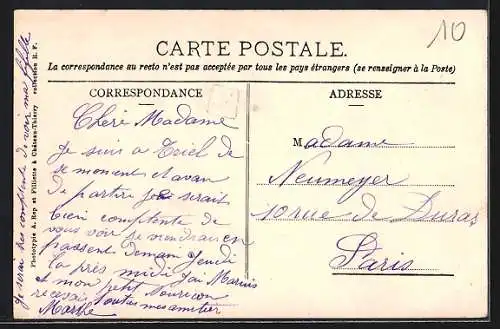 10
CARTE POSTALE.
La correspondance au recto n'est pas acceptée par tous les pays étrangers (se renseigner à la Poste)
CORRESPONDANCE
Cheré Madame
Je suis a Triel de
se moment et avan
de partire je serait
bien comptente de
vous voir je viendrai en
passent demain Jeudi
la près midi J'ai Marius
e mon petit Nourison
recevais toutes mes amitier
Marthe
ADRESSE
Madame
Neumeyer
10 rue de Duras
Paris
Je serai très comptente de voir ma fifille
Phototypie A. Rep et Filliette à Château-Thierry collection R. F.